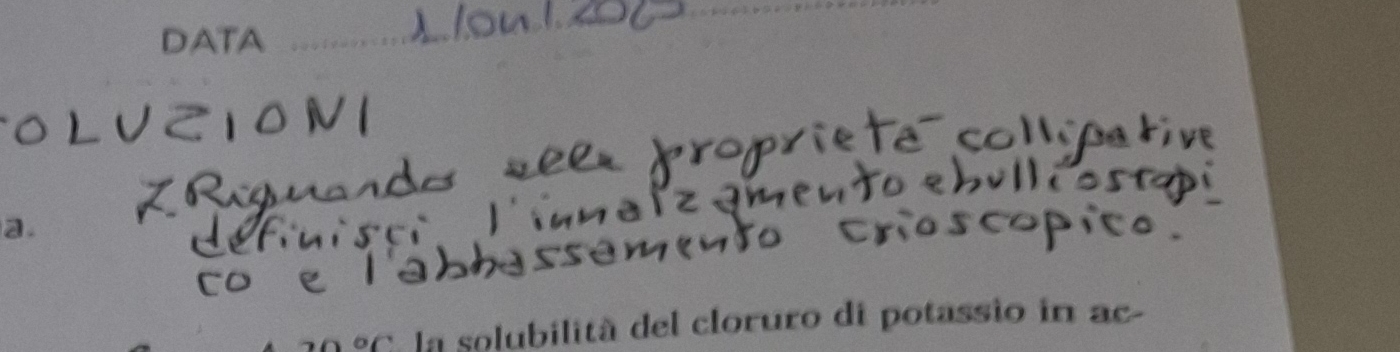 DATA 1/04/2025
OLUZIONI
7. Riguardo alle proprietà colligative
a. definisci l'innalzamento ebullioscopi-
co e l'abbassamento crioscopico.
A 20 °C la solubilità del cloruro di potassio in ac-